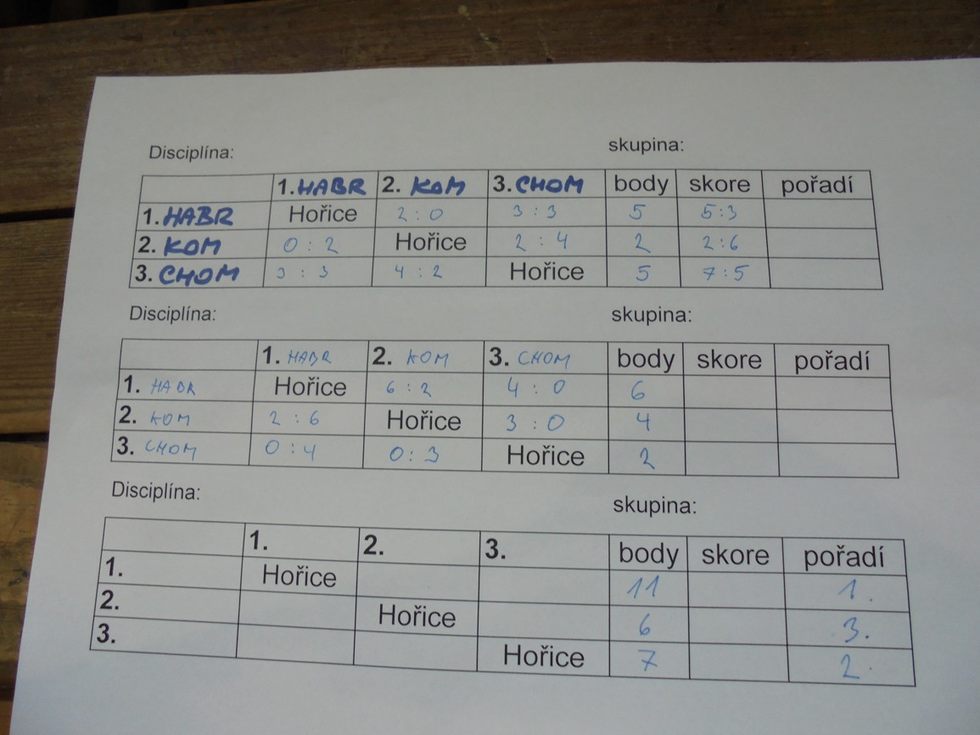 Disciplína: skupina:
1. HABR 2. KOM 3. CHOM body skore pořadí
1. HABR Hořice 2:0 3:3 5 5:3
2. KOM 0:2 Hořice 2:4 2 2:6
3. CHOM 3:3 4:2 Hořice 5 7:5
Disciplína: skupina:
1. HABR 2. KOM 3. CHOM body skore pořadí
1. HABR Hořice 6:2 4:0 6
2. KOM 2:6 Hořice 3:0 4
3. CHOM 0:4 0:3 Hořice 2
Disciplína: skupina:
1. 2. 3. body skore pořadí
1. Hořice 11 1.
2. Hořice 6 3.
3. Hořice 7 2.